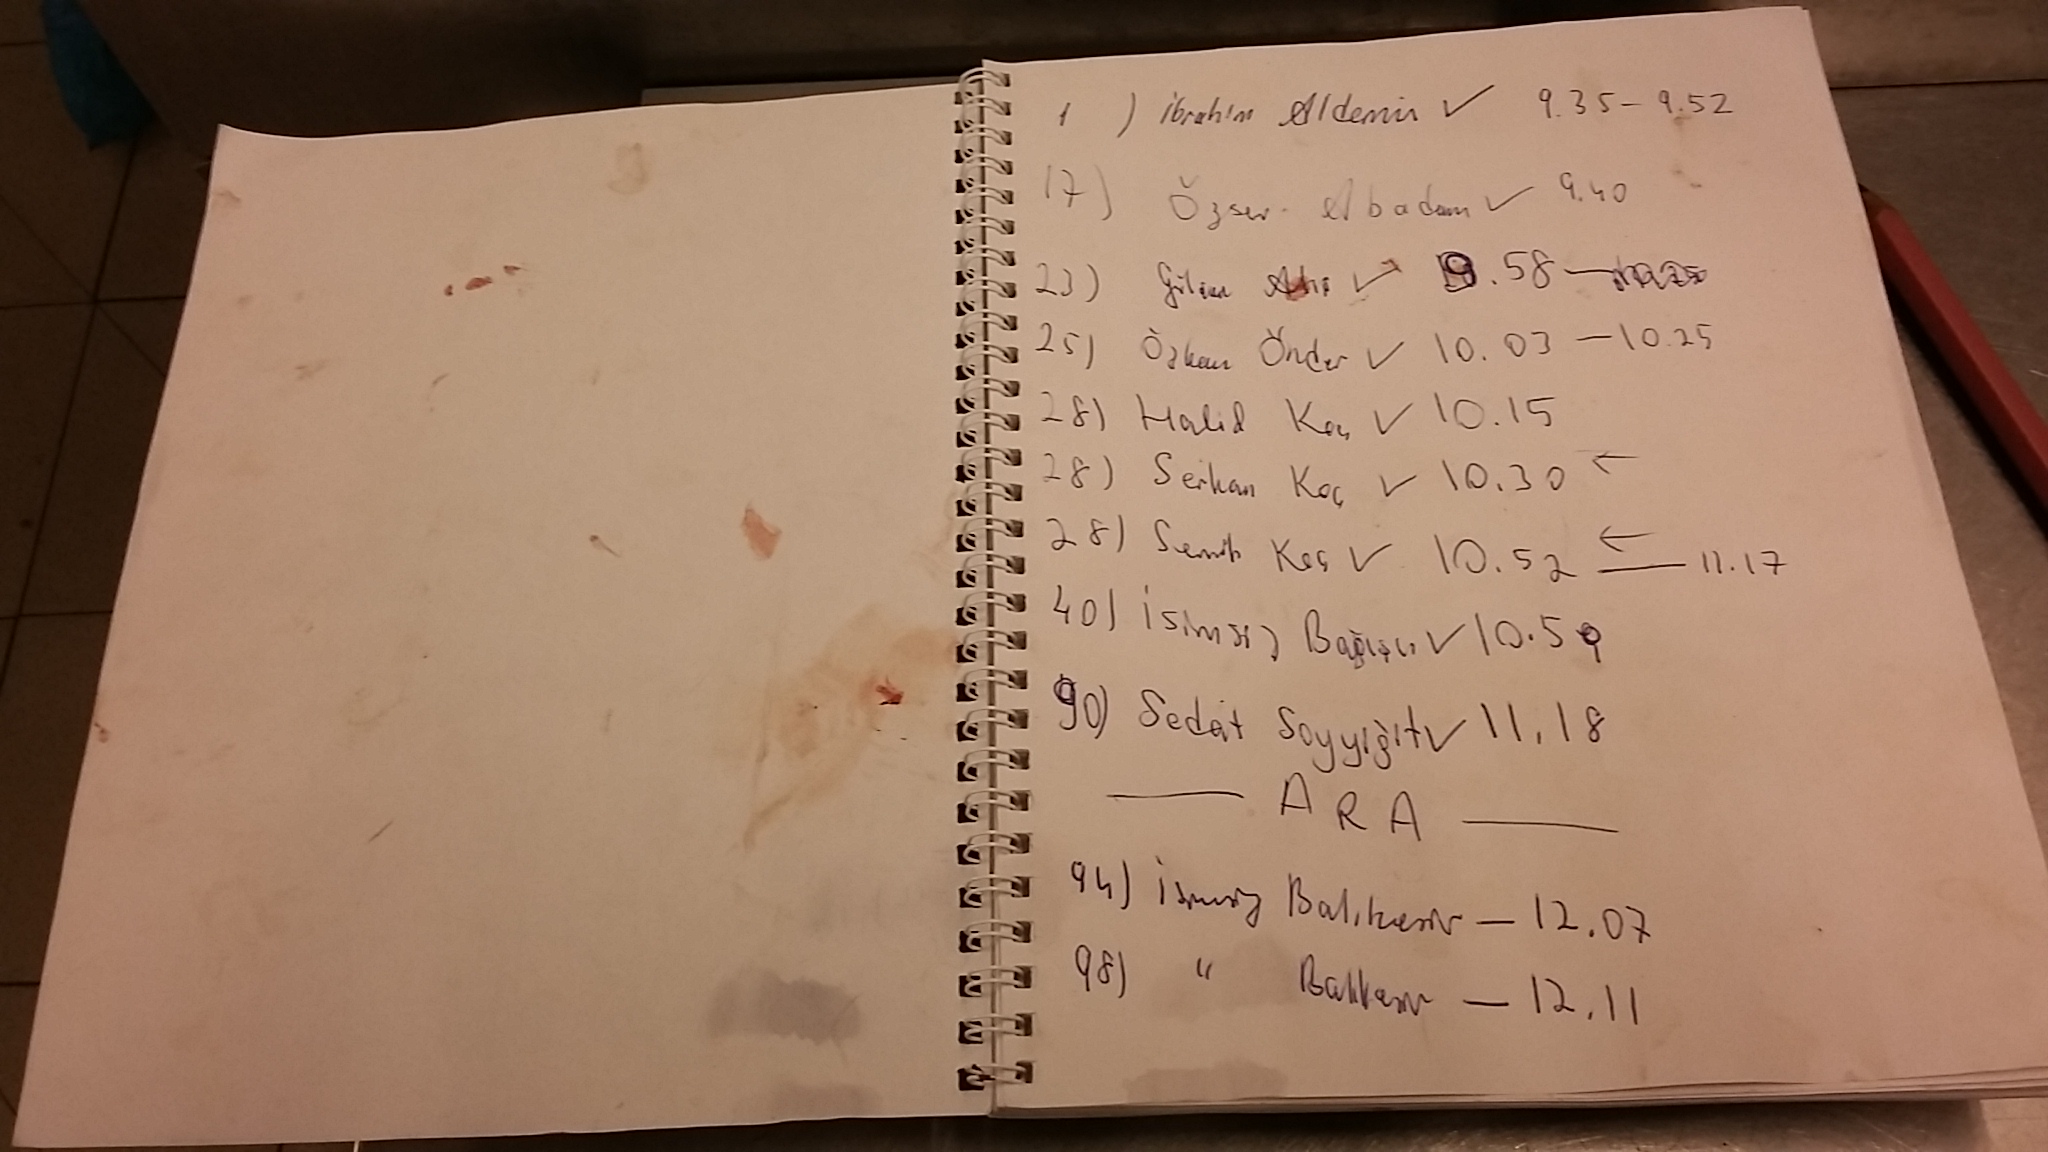 1 ) İbrahim Aldemir ✓ 9.35 - 9.52
17) Özser Abadan ✓ 9.40
23) ✓ 9.58 —
25) Özkan Önder ✓ 10.03 — 10.25
28) Halid Koç ✓ 10.15
28) Serkan Koç ✓ 10.30 ←
28) Semih Koç ✓ 10.52 ← — 11.17
40) İsimsiz Bağışçı ✓ 10.59
90) Sedat Soyyiğit ✓ 11.18
— ARA —
94) İsimsiz Balıkesir — 12.07
98) " Balıkesir — 12.11